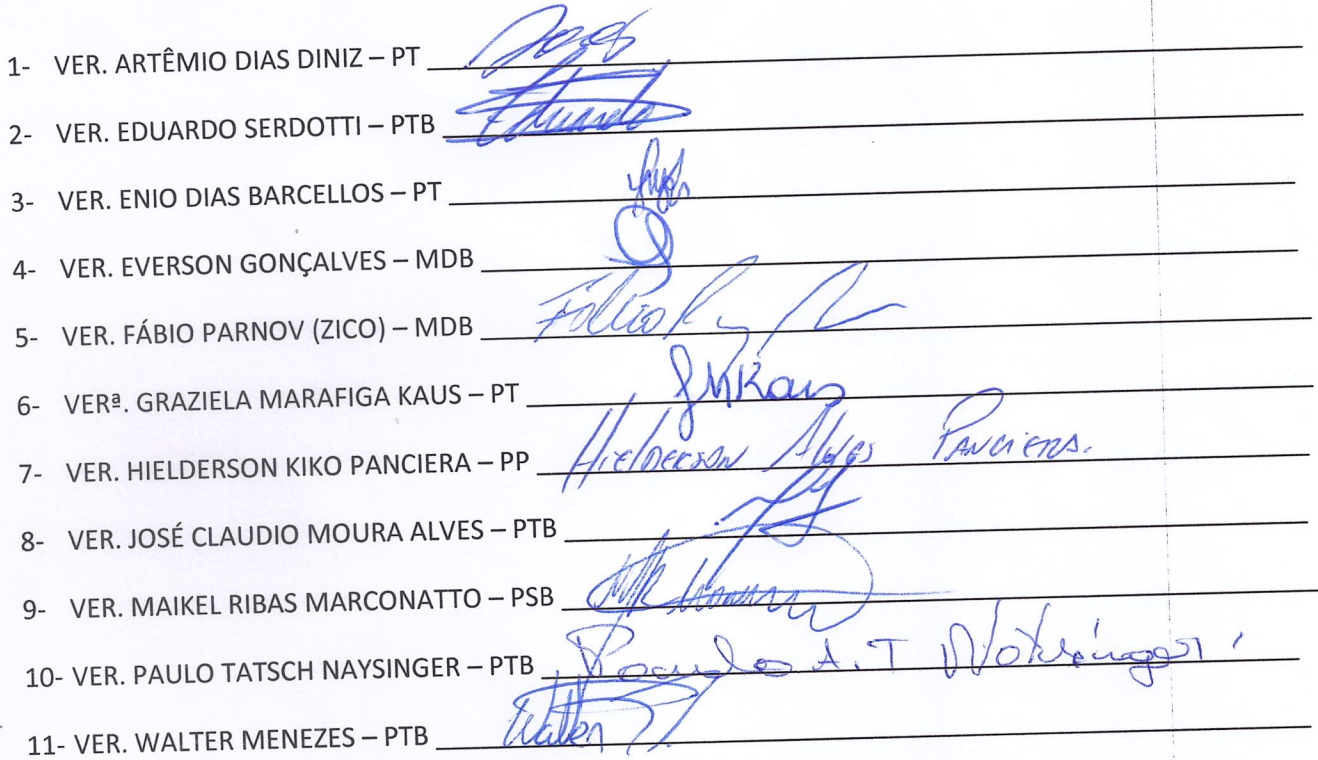 1- VER. ARTÊMIO DIAS DINIZ – PT
2- VER. EDUARDO SERDOTTI – PTB Eduardo
3- VER. ENIO DIAS BARCELLOS – PT
4- VER. EVERSON GONÇALVES – MDB
5- VER. FÁBIO PARNOV (ZICO) – MDB Fábio
6- VERª. GRAZIELA MARAFIGA KAUS – PT GMKaus
7- VER. HIELDERSON KIKO PANCIERA – PP Hielderson Alves Panciera.
8- VER. JOSÉ CLAUDIO MOURA ALVES – PTB
9- VER. MAIKEL RIBAS MARCONATTO – PSB
10- VER. PAULO TATSCH NAYSINGER – PTB Paulo A. T
11- VER. WALTER MENEZES – PTB Walter